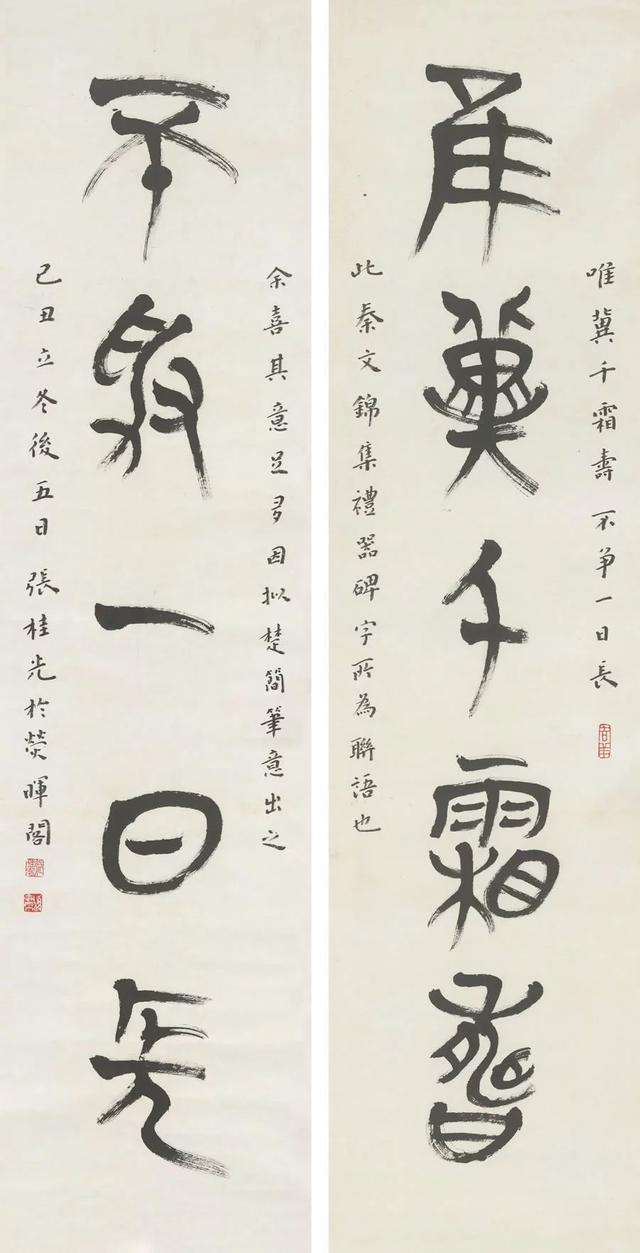 唯冀千霜壽不争一日長
隹冀千霜壽
此秦文錦集禮器碑字所為聯語也
余喜其意足多因拟楚簡筆意出之
不爭一日長
己丑立冬後五日張桂光於熒暉閣